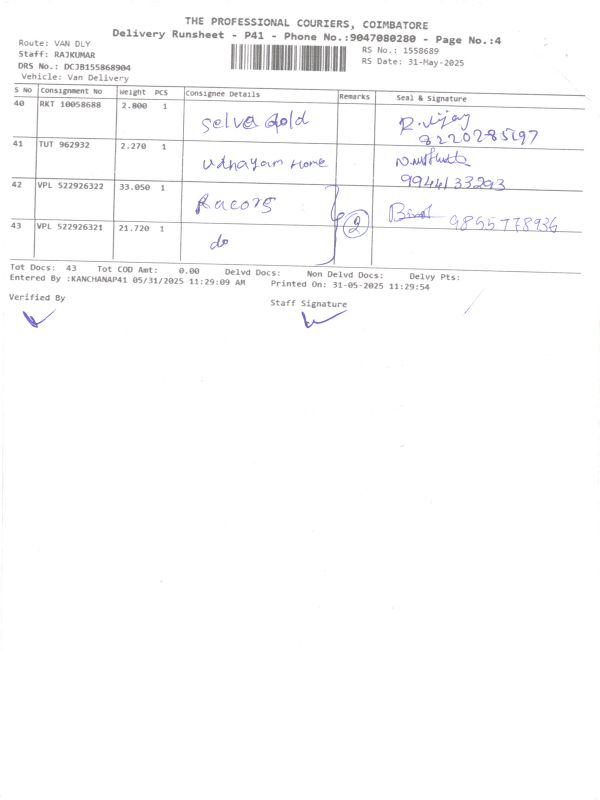 THE PROFESSIONAL COURIERS, COIMBATORE
Delivery Runsheet - P41 - Phone No.:9047080280 - Page No.:4
Route: VAN DLY
Staff: RAJKUMAR
DRS No.: DCJB155868904
Vehicle: Van Delivery
RS No.: 1558689
RS Date: 31-May-2025
S No Consignment No Weight PCS Consignee Details Remarks Seal & Signature
40 RKT 10058688 2.800 1 Selva Gold R.Vijay
8220285197
41 TUT 962932 2.270 1 Udhayam Home
9944133293
42 VPL 522926322 33.050 1 Racors 2 9855778936
43 VPL 522926321 21.720 1 do
Tot Docs: 43 Tot COD Amt: 0.00 Delvd Docs: Non Delvd Docs: Delvy Pts:
Entered By :KANCHANAP41 05/31/2025 11:29:09 AM Printed On: 31-05-2025 11:29:54
Verified By
Staff Signature